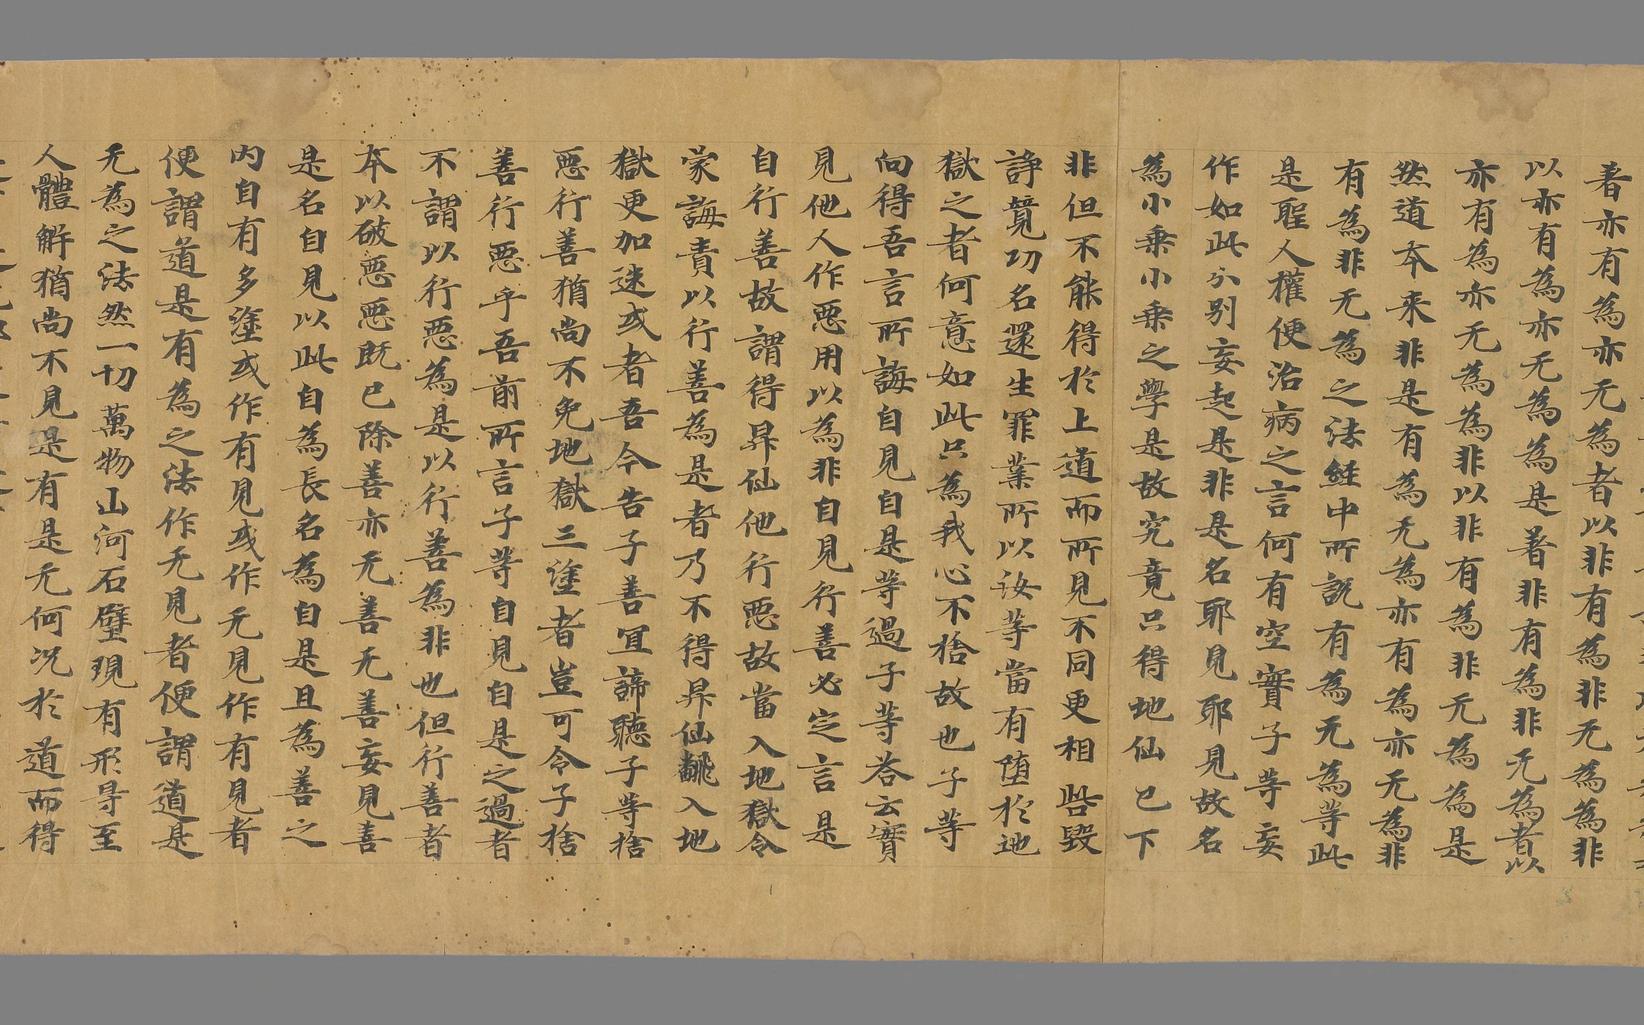 著亦有為亦无為者以非有為非无為為非
以亦有為亦无為為是著非有為非无為者以
亦有為亦无為為非以非有為非无為為是
然道本来非是有為无為亦有為亦无為非
有為非无為之法経中所説有為无為等此
是聖人權便治病之言何有空實子等妄
作如此分别妄起是非是名耶見耶見故名
為小乗小乗之學是故究竟只得地仙已下
非但不能得於上道而所見不同更相呰毀
諍競功名還生罪業所以汝等當有堕於地
獄之者何意如此只為我心不捨故也子等
向得吾言所誨自見自是等過子等荅云實
見他人作惡用以為非自見行善必定言是
自行善故謂得昇仙他行惡故當入地獄今
蒙誨責以行善為是者乃不得昇仙飜入地
獄更加迷或者吾今告子善宜諦聽子等捨
惡行善猶尚不免地獄三塗者豈可令子捨
善行惡乎吾前所言子等自見自是之過者
不謂以行惡為是以行善為非也但行善者
本以破惡惡既已除善亦无善无善妄見善
是名自見以此自為長名為自是且為善之
内自有多塗或作有見或作无見作有見者
便謂道是有為之法作无見者便謂道是
无為之法然一切萬物山河石壁現有形㝵至
人體解猶尚不見是有是无何況於道而得